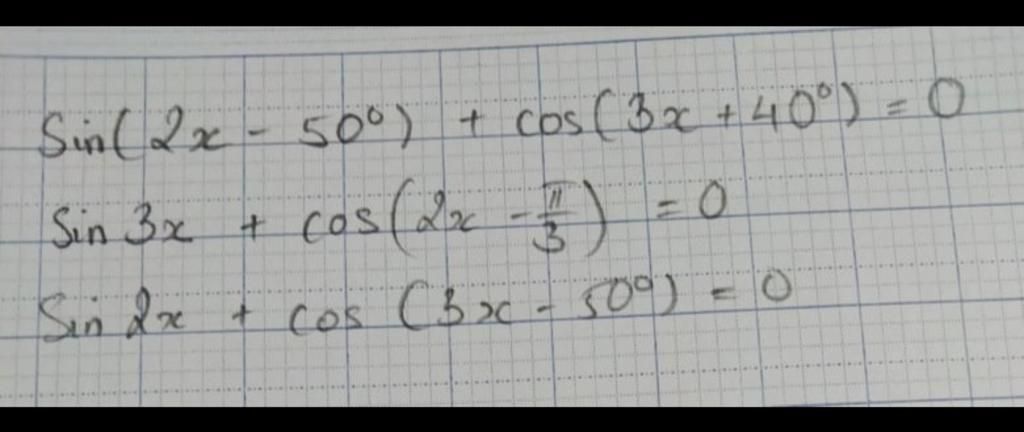 Sin(2x - 50°) + cos(3x + 40°) = 0
Sin 3x + cos(2x - π/3) = 0
Sin 2x + cos (3x - 50°) = 0